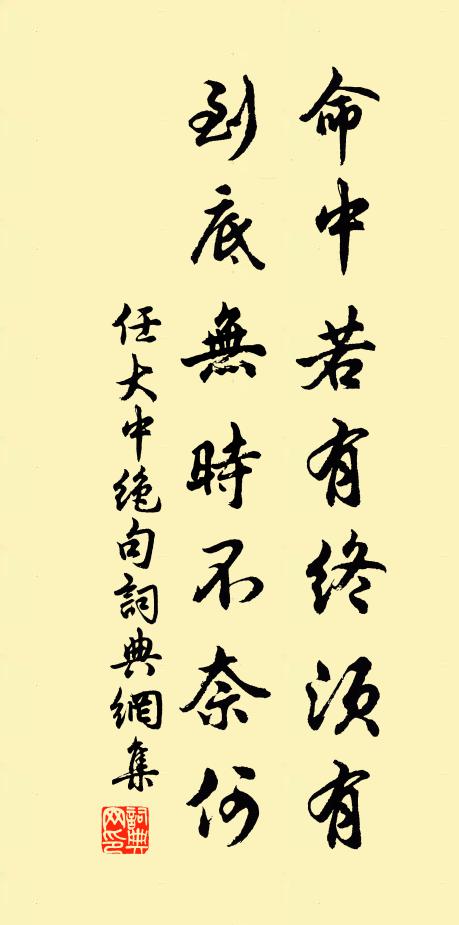 命中若有終須有
到底無時不奈何
任大中絶句詞典網集
詞典网印